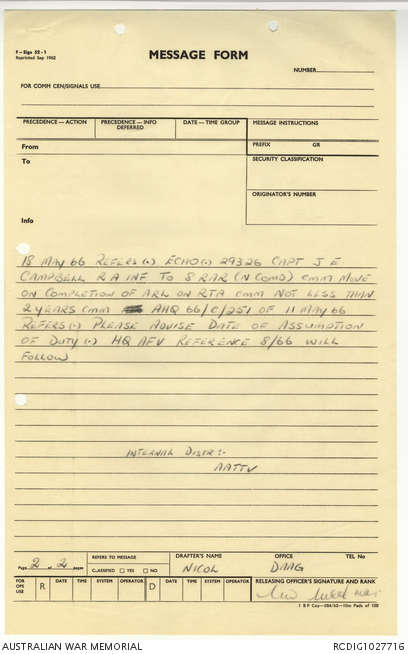 F—Sigs 52-1
Reprinted Sep 1962
MESSAGE FORM
NUMBER
FOR COMM CEN/SIGNALS USE
PRECEDENCE — ACTION
PRECEDENCE — INFO
DEFERRED
DATE — TIME GROUP
MESSAGE INSTRUCTIONS
From
PREFIX GR
To
SECURITY CLASSIFICATION
ORIGINATOR'S NUMBER
Info
18 MAY 66 REFERS(.) ECHO(.) 29326 CAPT J E
CAMPBELL R A INF TO 8 RAR (N COMD) CMM MOVE
ON COMPLETION OF ARL ON RTA CMM NOT LESS THAN
2 YEARS CMM AHQ 66/C/251 OF 11 MAY 66
REFERS(.) PLEASE ADVISE DATE OF ASSUMPTION
OF DUTY(.) HQ AFV REFERENCE 8/66 WILL
FOLLOW
INTERNAL DISTR:-
AATTV
Page 2 of 2 pages
REFERS TO MESSAGE
CLASSIFIED YES NO
DRAFTER'S NAME
NICOL
OFFICE
DAAG
TEL No
FOR OPS USE
R DATE TIME SYSTEM OPERATOR D DATE TIME SYSTEM OPERATOR
RELEASING OFFICER'S SIGNATURE AND RANK
AUSTRALIAN WAR MEMORIAL
RCDIG1027716